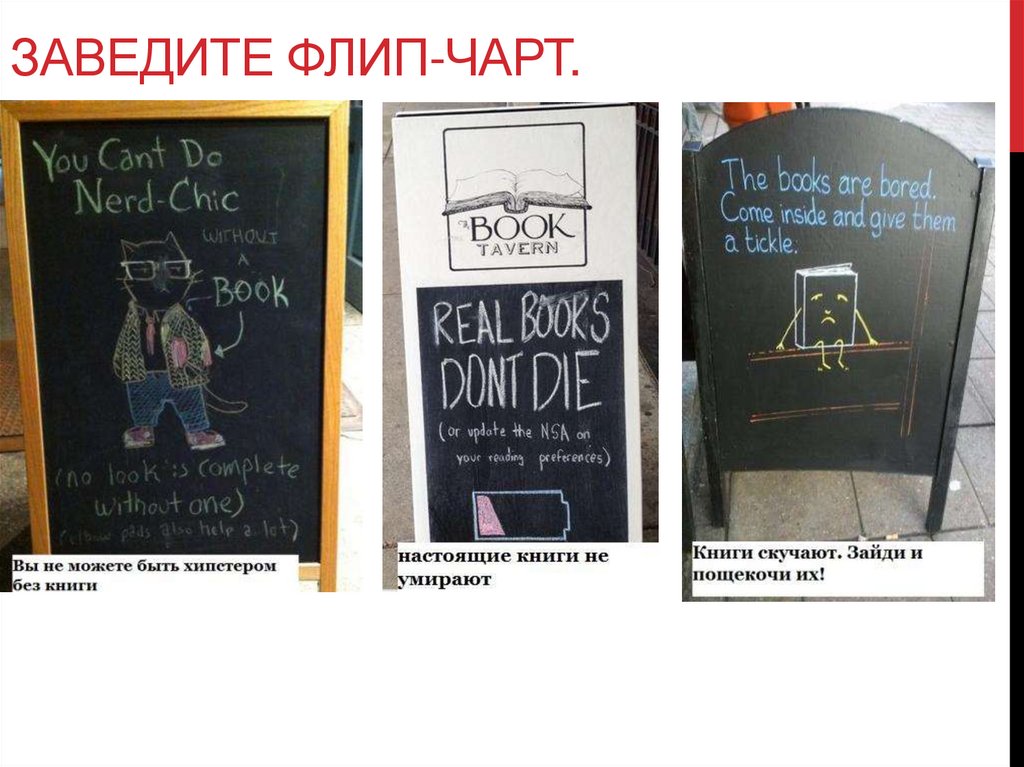 ЗАВЕДИТЕ ФЛИП-ЧАРТ.
You Cant Do
Nerd-Chic
WITHOUT
A
BOOK
(no look is complete
without one)
(elbow pads also help a lot)
Вы не можете быть хипстером
без книги
BOOK
TAVERN
REAL BOOKS
DONT DIE
(or update the NSA on
your reading preferences)
настоящие книги не
умирают
The books are bored.
Come inside and give them
a tickle.
Книги скучают. Зайди и
пощекочи их!